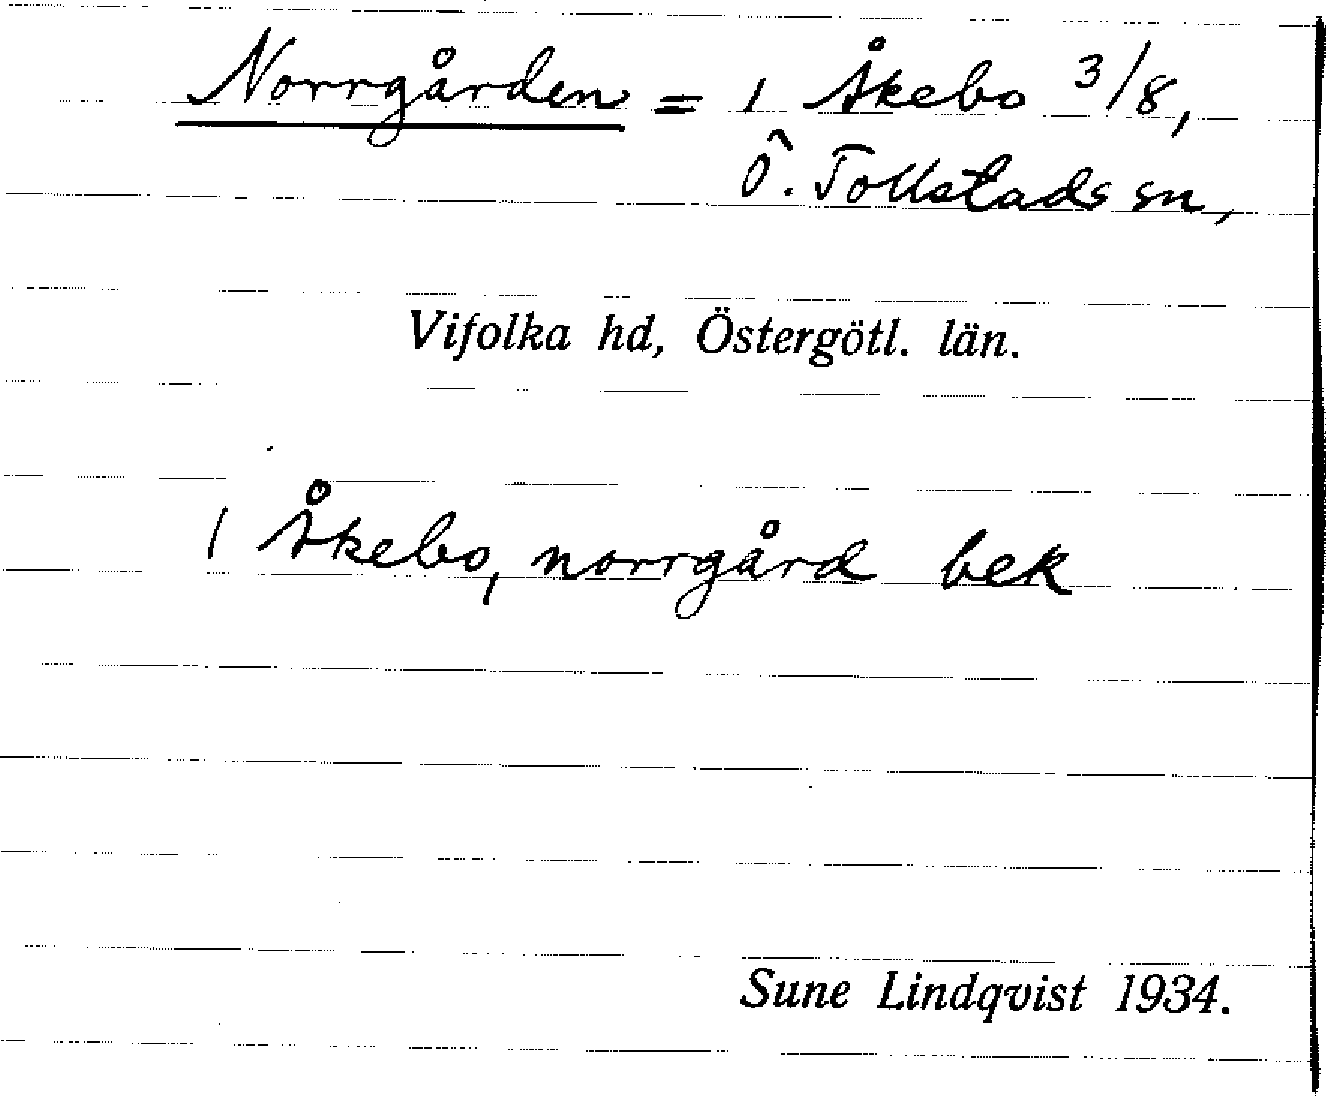 Norrgården = 1 Åkebo 3/8,
Ö. Tollstads sn,
Vifolka hd, Östergötl. län.
1 Åkebo, norrgård bek
Sune Lindqvist 1934.